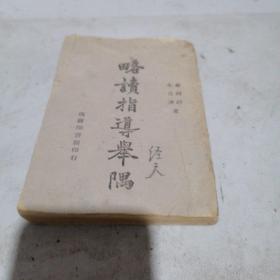 葉紹鈞
朱自清 著
略讀指導舉隅
經天
商務印書館印行